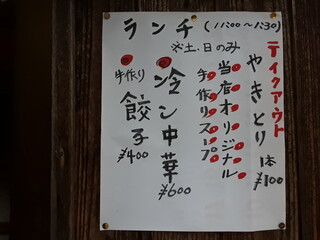 ランチ (11:00～1:30)
※土、日のみ
テイクアウト
やきとり 1本 ¥100
当店オリジナル
手作りスープ
冷シ中華 ¥600
手作り
餃子 ¥400